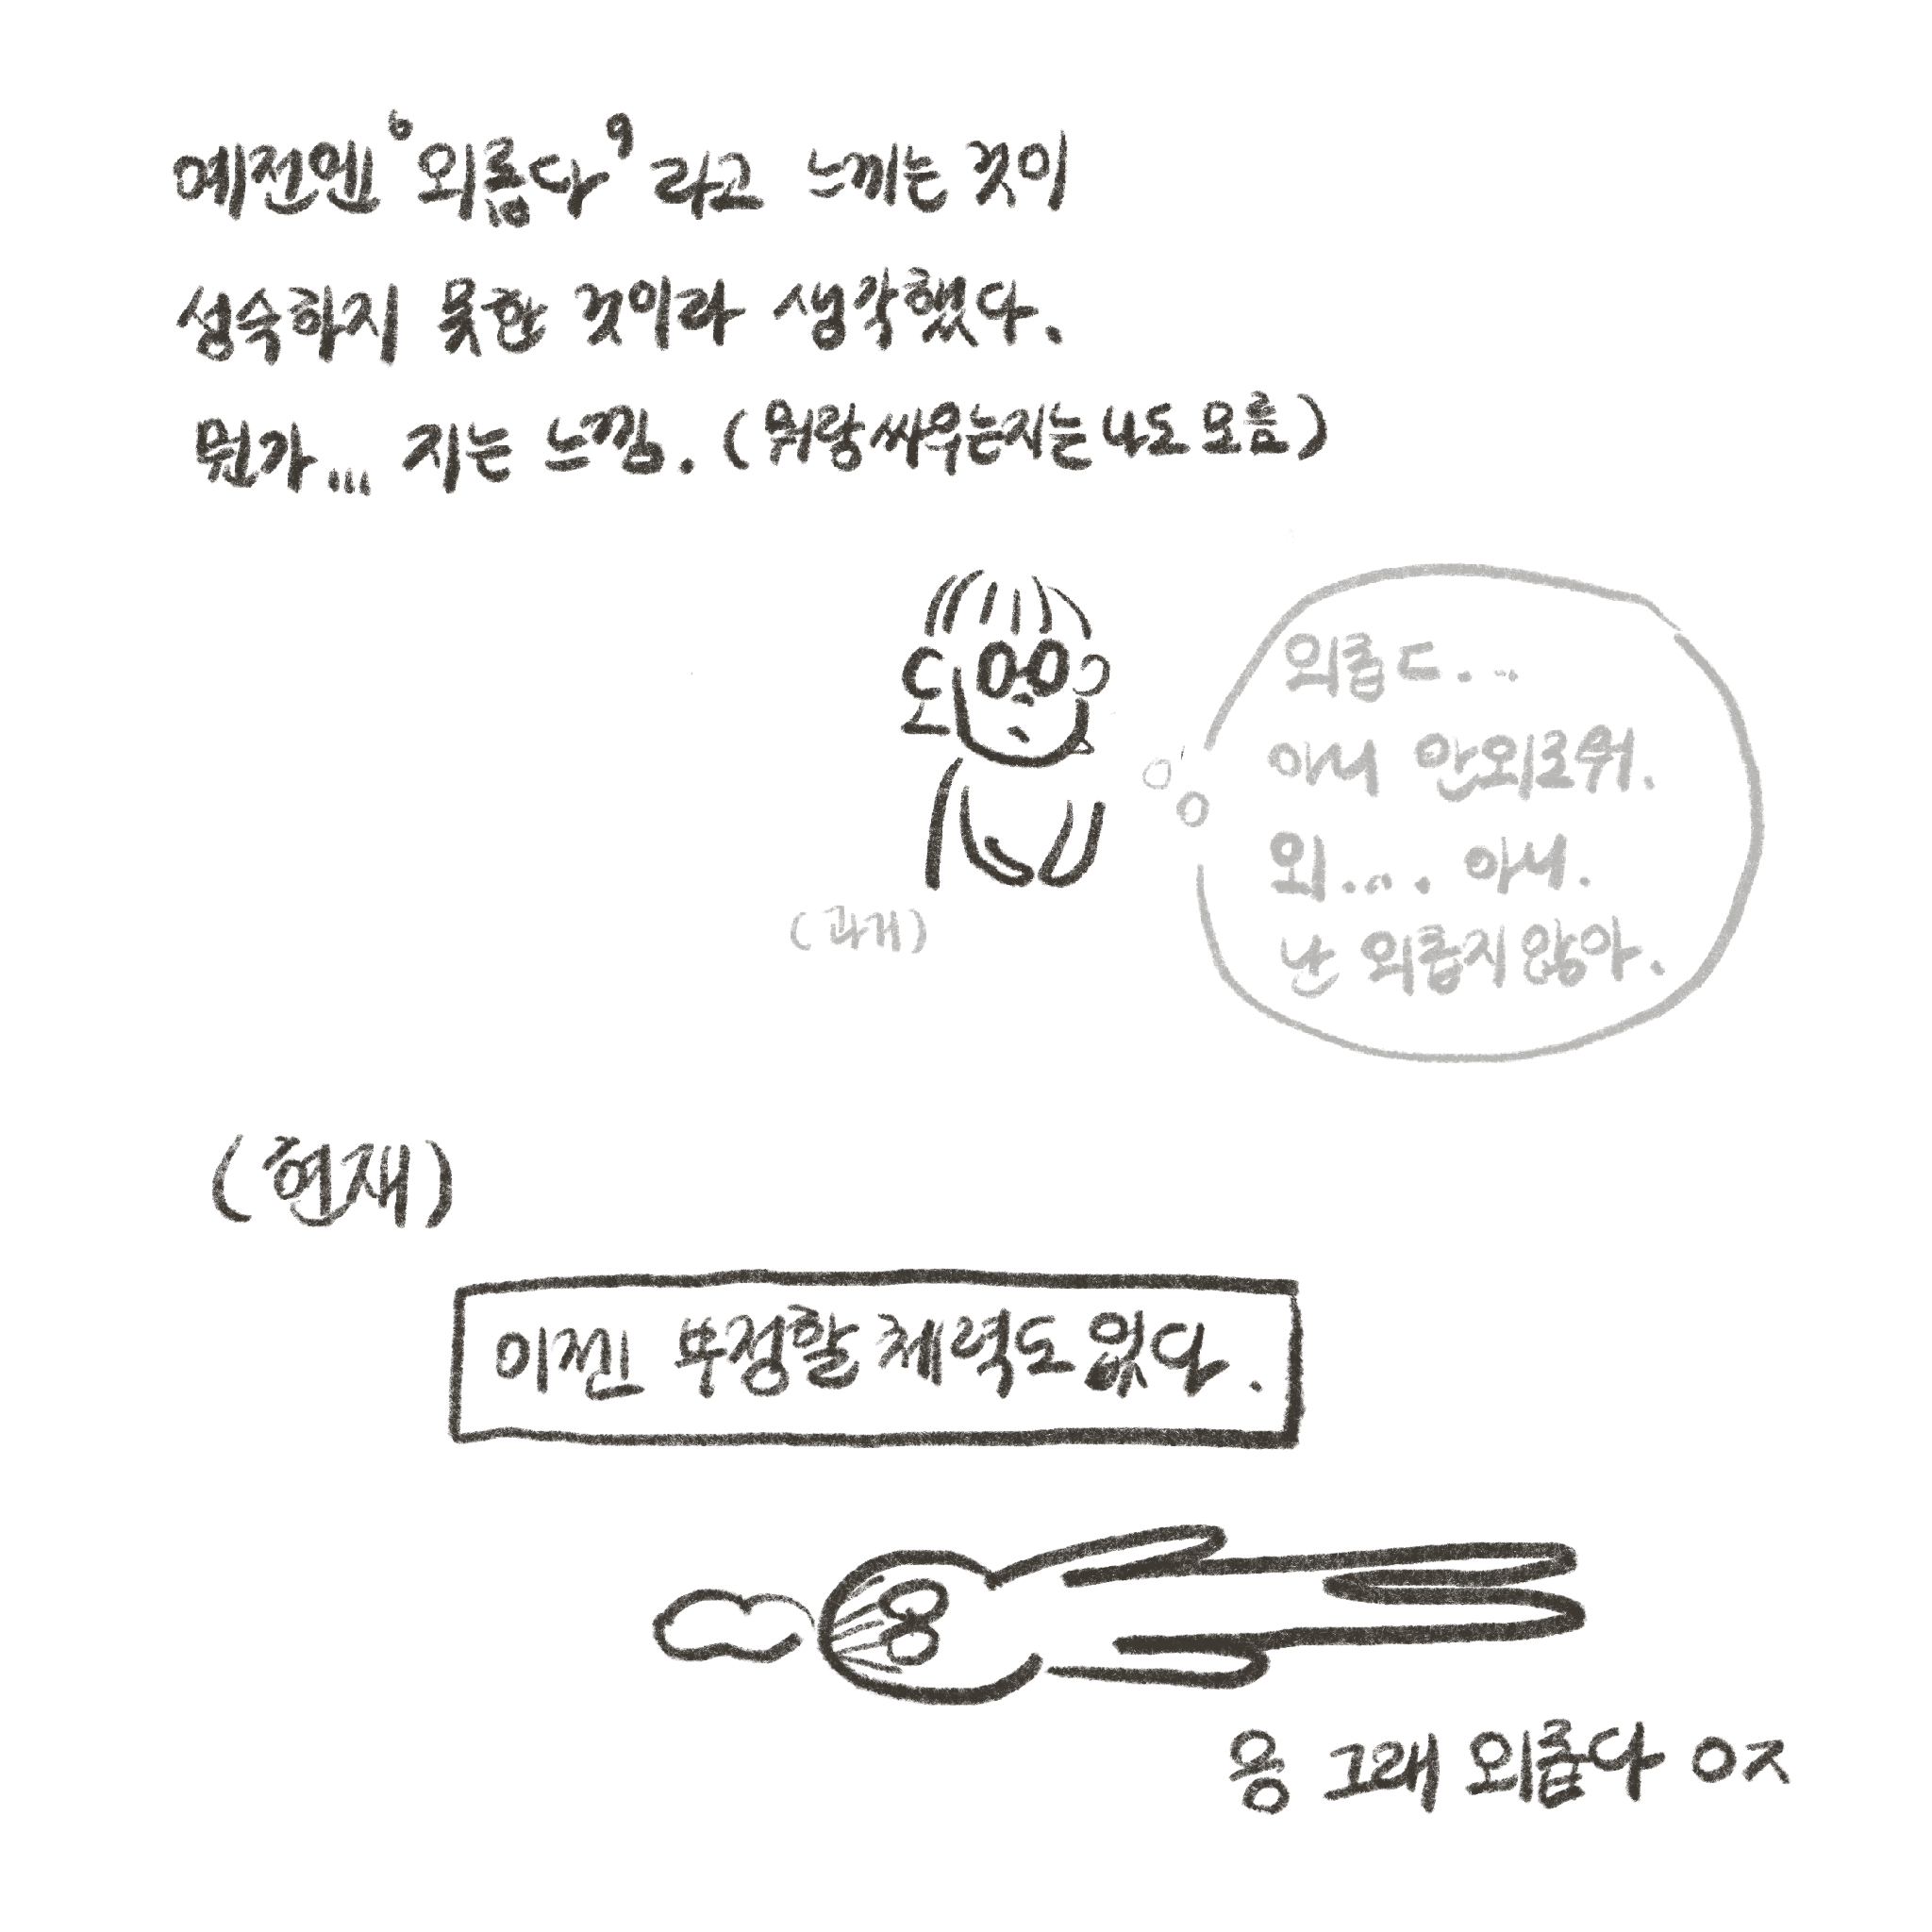 예전엔 '외롭다' 라고 느끼는 것이
성숙하지 못한 것이라 생각했다.
뭔가... 지는 느낌. (뭐랑 싸우는지는 나도 모름)
외롭ㄷ. ...
아니 안외로워.
외.... 아니.
난 외롭지 않아.
(과거)
(현재)
이젠 부정할 체력도 없다.
응 그래 외롭다 ㅇㅈ